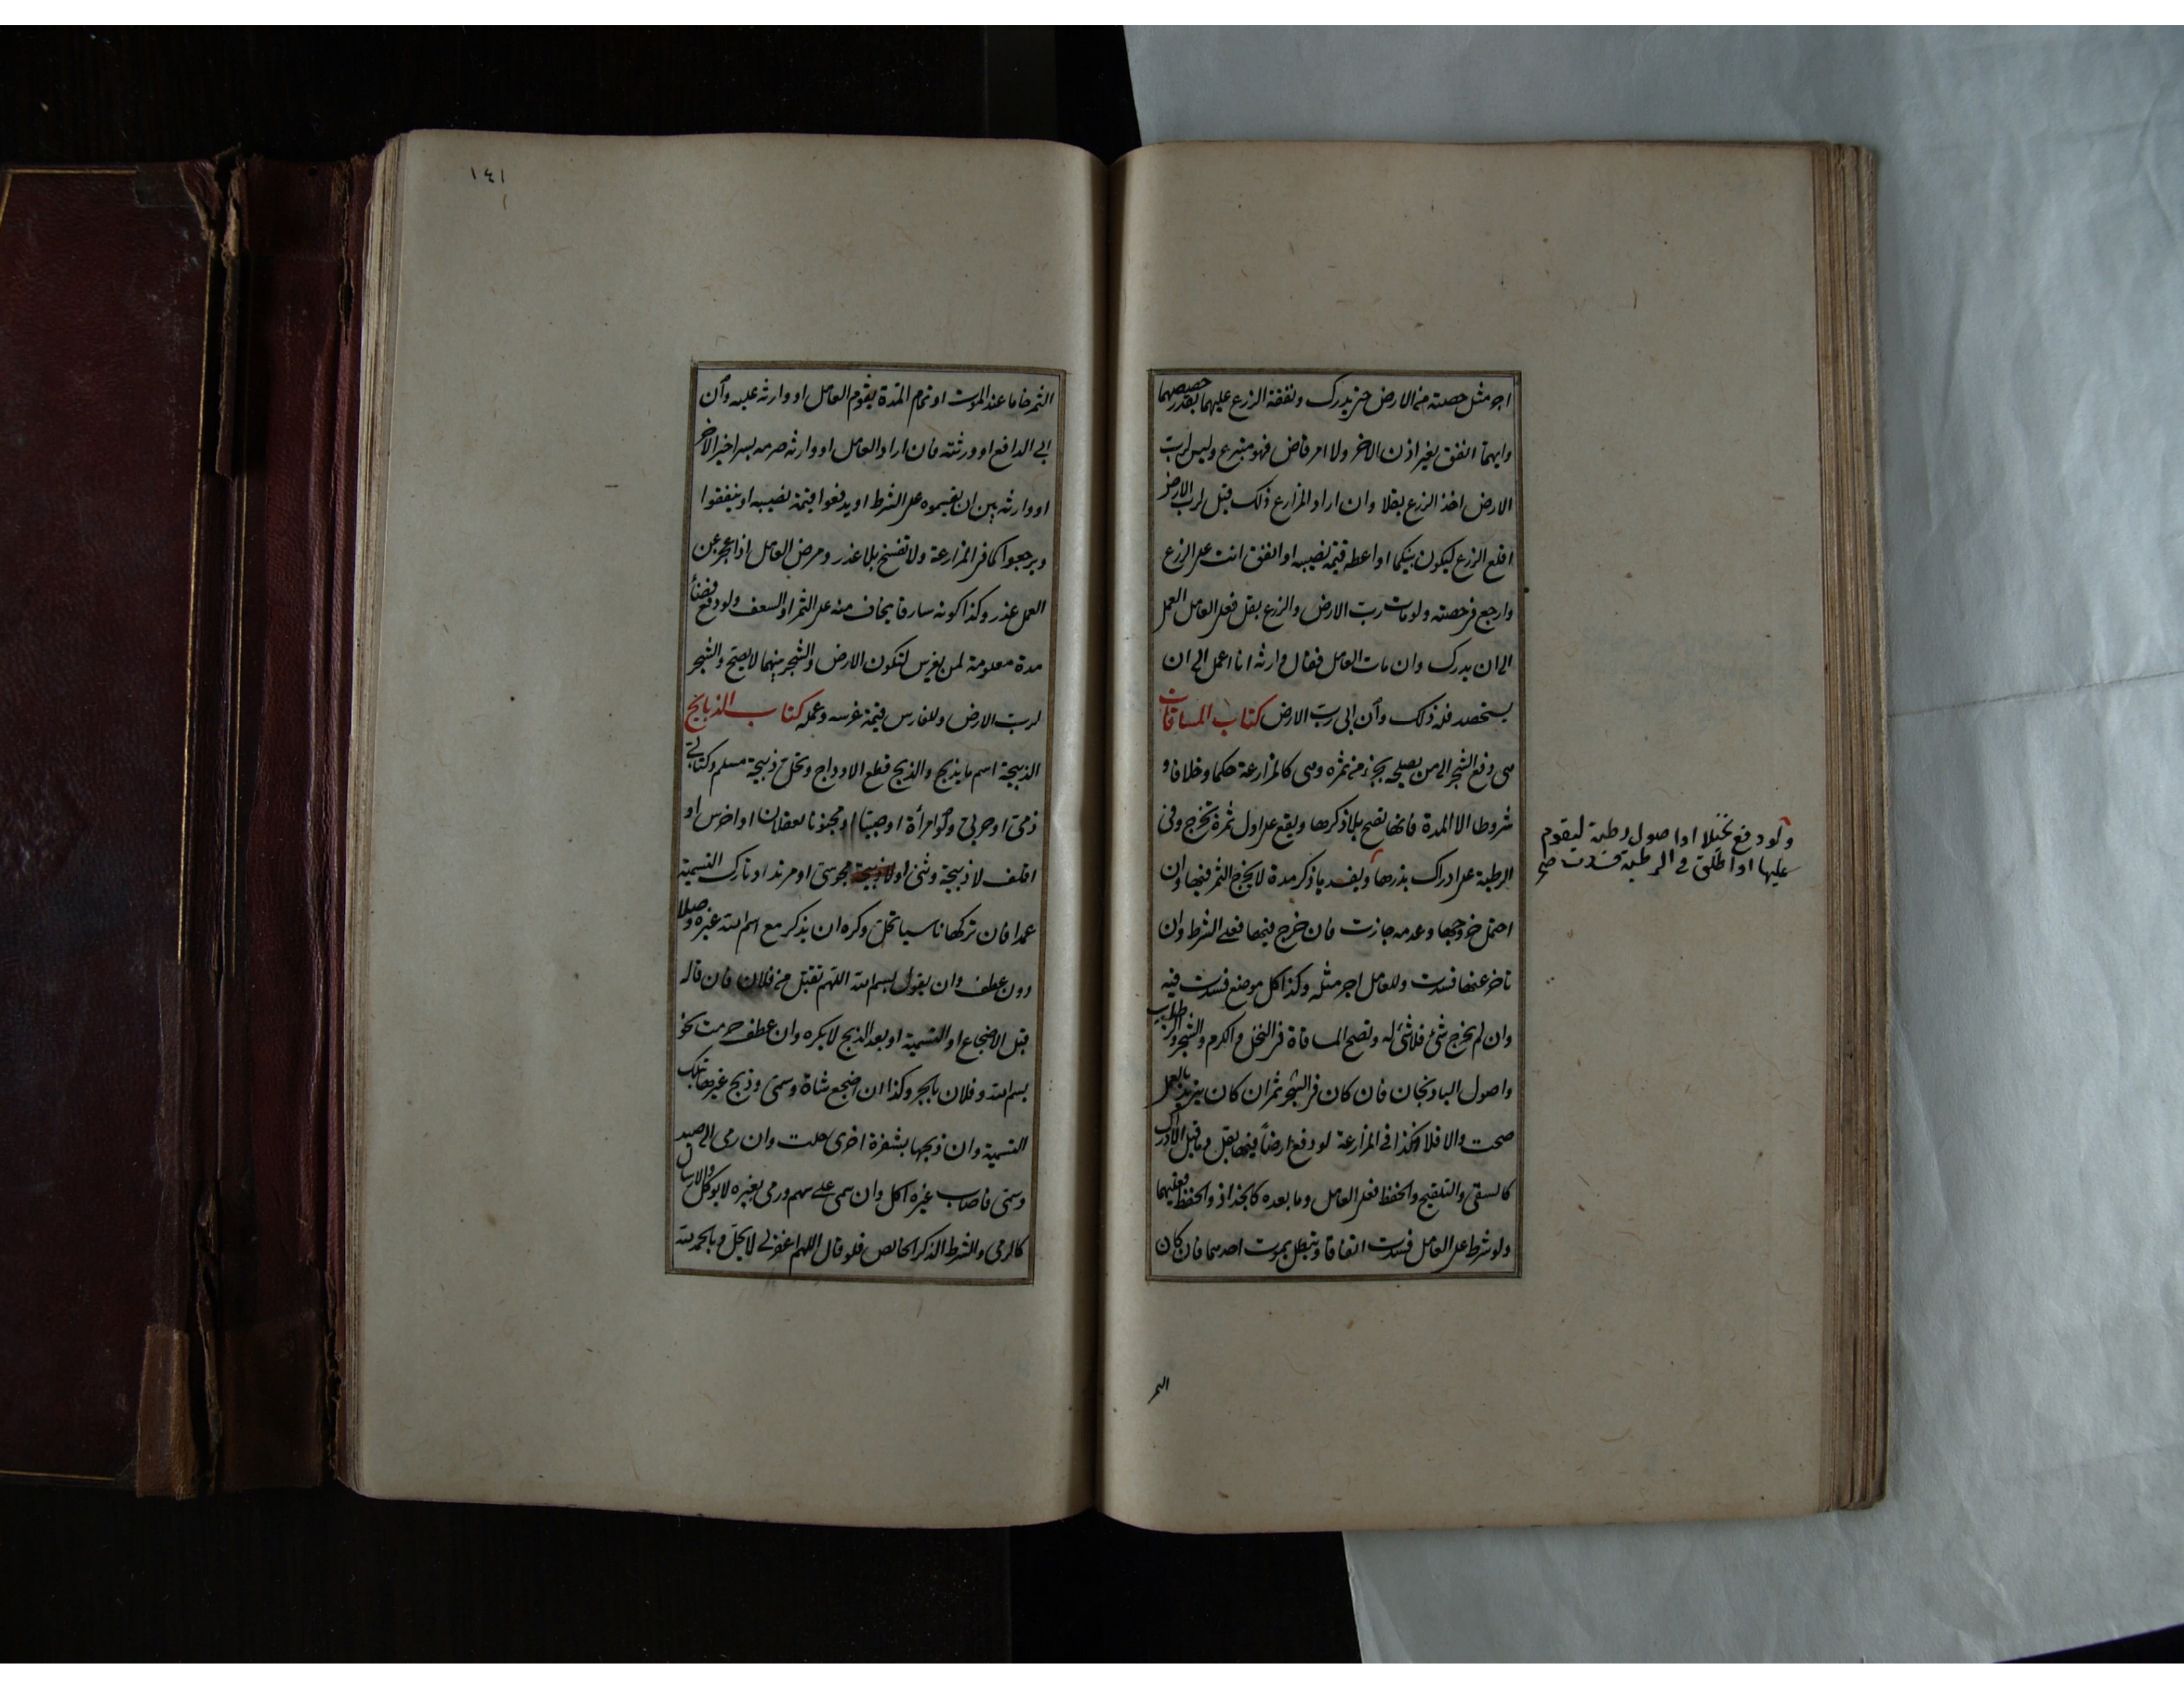 اجر مثل حصته من الارض حتى يدرك ونفقة الزرع عليهما بقدر حصصهما
وايهما انفق بغير اذن الاخر ولا امر قاض فهو متبرع وليس لرب
الارض اخذ الزرع بقلا وان اراد المزارع ذلك قيل لرب الارض
اقلع الزرع ليكون بينكما او اعطه قيمة نصيبه او انفق انت على الزرع
وارجع في حصته ولو مات رب الارض والزرع بقل فعلى العامل العمل
الى ان يدرك وان مات العامل فقال وارثه انا اعمل الى ان
يستحصد فله ذلك وأن ابى رب الارض كتاب المساقات
هى دفع الشجر الى من يصلحه بجزء من ثمره وهى كالمزارعة حكما وخلافا و
شروطا الا المدة فانها تصح بلا ذكرها ويقع على اول ثمرة تخرج وفى
الرطبة على ادراك بذرها ويفسد بذكر مدة لا يخرج الثمر فيها وان
احتمل خروجها وعدمه جازت فان خرج فيها فعلى الشرط وان
تاخر عنها فسدت وللعامل اجر مثله وكذا كل موضع فسدت فيه
وان لم يخرج شئ فلا شئ له وتصح المساقاة فى النخل والكرم والشجر والرطاب
واصول الباذنجان فان كان فى الشجر ثمر ان كان يزيد بالعمل
صحت والا فلا وكذا فى المزارعة لو دفع ارضاً فيها بقل وما قبل الادراك
كالسقى والتلقيح والحفظ فعلى العامل وما بعده كالجذاذ والحفظ فعليهما
ولو شرط على العامل فسدت اتفاقا وتبطل بموت احدهما فان كان
ولو دفع نخيلا او اصول رطبة ليقوم
عليها او اطلق فى الرطبة فسدت صح
الثمر
١٤١
الثمر خاما عند الموت او تمام المدة يقوم العامل او وارثه عليه وأن
ابى الدافع او ورثته فان اراد العامل او وارثه صرمه بسرا خير الاخر
او وارثه بين ان يقسموه على الشرط او يدفعوا قيمة نصيبه او ينفقوا
ويرجعوا كما فى المزارعة ولا تفسخ بلا عذر ومرض العامل اذا عجز عن
العمل عذر وكذا كونه سارقا يخاف منه على الثمر او السعف ولو دفع فضاءً
مدة معلومة لمن يغرس لتكون الارض والشجر بينهما لا يصح والشجر
لرب الارض وللغارس قيمة غرسه وعمله كتاب الذبايح
الذبيحة اسم ما يذبح والذبح قطع الاوداج وتحل ذبيحة مسلم وكتابى
ذمى او حربى ولو امرأة او صبيا او مجنونا يعقلان او اخرس او
اقلف لا ذبيحة وثنى او مجوسى او مرتد او تارك التسمية
عمدا فان تركها ناسيا تحل وكره ان يذكر مع اسم الله غيره وصلا
دون عطف وان يقول بسم الله اللهم تقبل من فلان فان قاله
قبل الاضجاع او التسمية او بعد الذبح لا يكره وان عطف حرمت نحو
بسم الله وفلان بالجر وكذا ان اضجع شاة وسمى وذبح غيرها بتلك
التسمية وان ذبحها بشفرة اخرى حلت وان رمى الى صيد
وسمى فاصاب غيره اكل وان سمى على سهم ورمى بغيره لا يؤكل والارسال
كالرمى والشرط الذكر الخالص فلو قال اللهم اغفر لى لا يحل وبالحمد لله